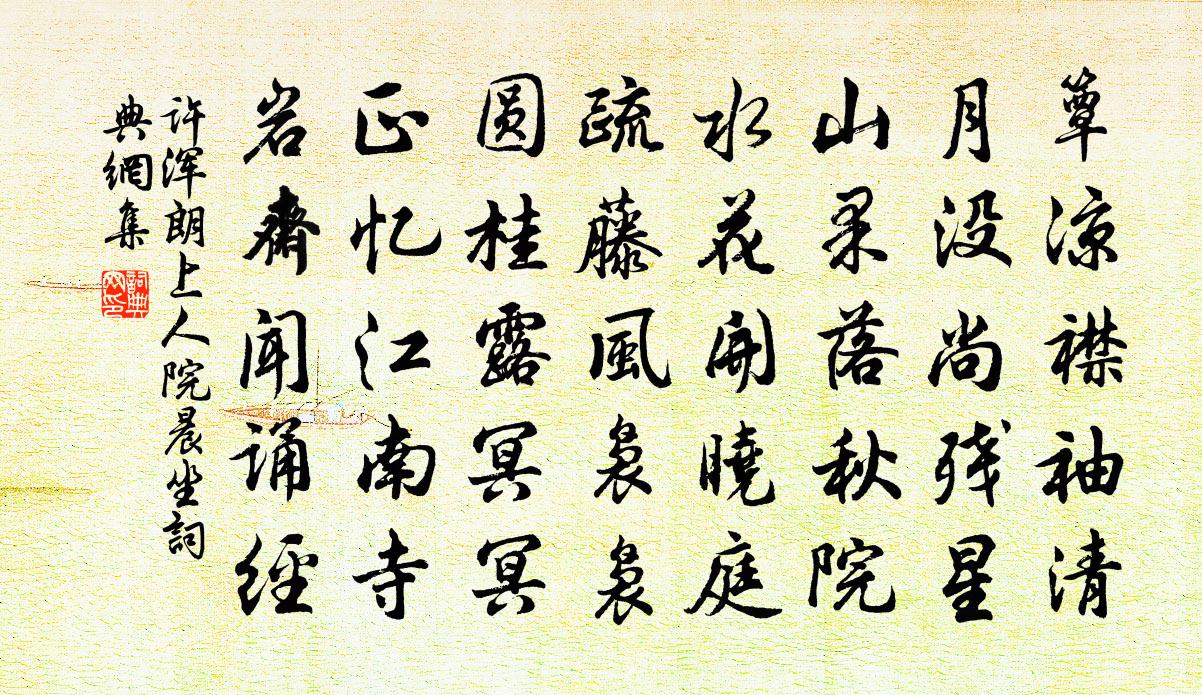 簟凉襟袖清
月没尚残星
山果落秋院
水花开曉庭
疏藤風袅袅
圆桂露冥冥
正忆江南寺
岩齋闻诵經
许浑朗上人院晨坐詞
典網集
詞典網印